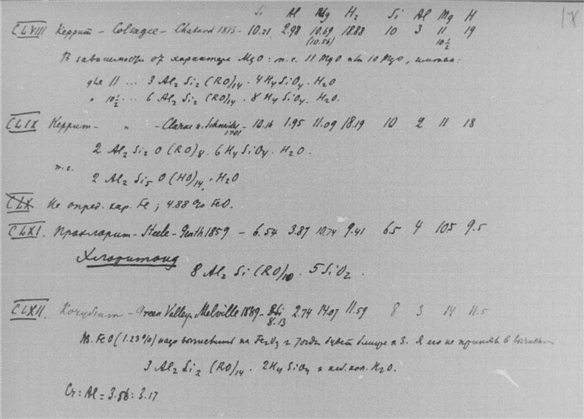 Si Al Mg H₂ Si Al Mg H
CLVIII Керрит - Culsagee - Chatard 1873 - 10.21 2.98 10.69 (10.56) 18.88 10 3 11 10½ 19
В зависимости от характера MgO: т.е. 11 MgO или 10 MgO, имеем:
для 11 ... 3 Al₂ Si₂ (RO)₁₄ . 4 H₄ SiO₄ . H₂O
" 10½ ... 6 Al₂ Si₂ (RO)₁₄ . 8 H₄ SiO₄ . H₂O.
CLIX Керрит - " - Clarke a. Schneider - 10.16 1.95 11.09 18.19 10 2 11 18
2 Al₂ Si₂ O (RO)₈ . 6 H₄ SiO₄ . H₂O .
т.е.
2 Al₂ Si₅ O (HO)₁₄ . H₂O
CLX Не опред. хар. Fe ; 4.88 % FeO.
CLXI. Прохлорит - Steele - Genth 1859 - 6.54 3.87 10.74 9.41 65 4 105 9.5
Хлоритоид
8 Al₂ Si (RO)₁₀ . 5 SiO₂ .
CLXII. Кочубеит - Green Valley - Melville 1889 - 8.13 2.74 14.07 11.59 8 3 14 11.5
NB. FeO (1.23%) надо вычислить на Fe₂O₃ и тогда будет ближе к 3. Я его не принял в
3 Al₂ Si₂ (RO)₁₄ . 2 H₄ SiO₄ с кол. H₂O.
Cr : Al = 3.56 : 3.17